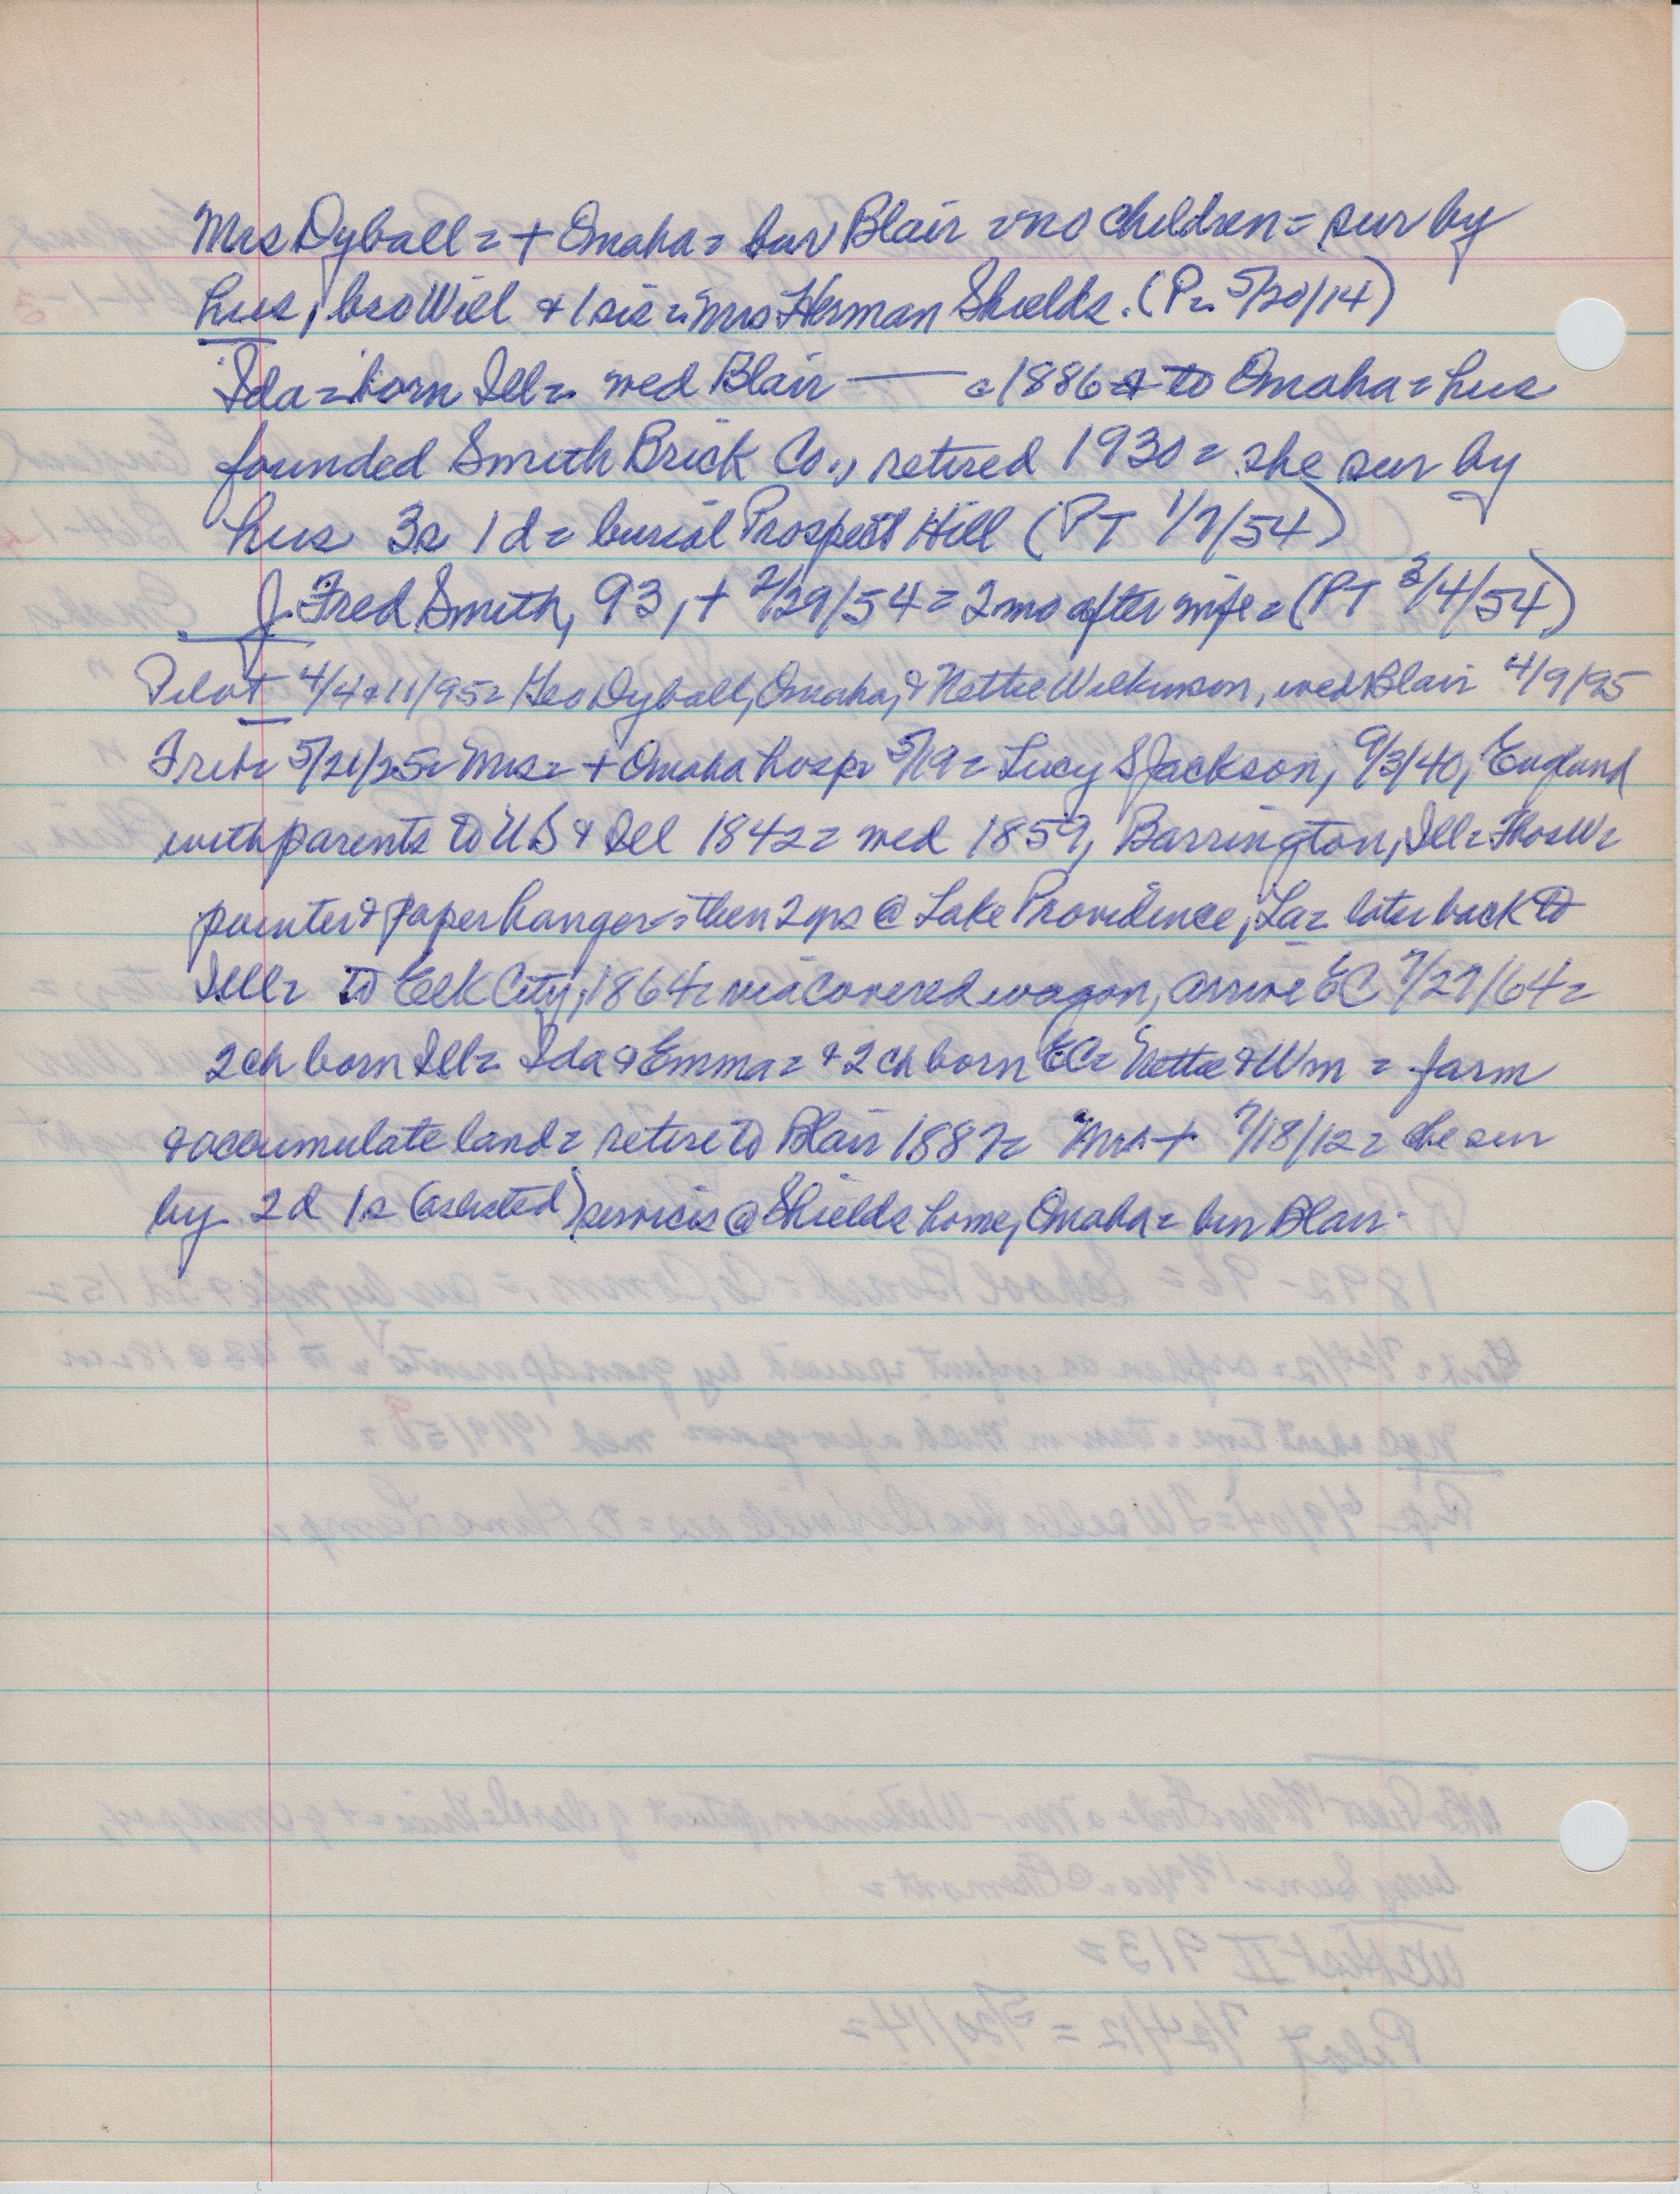 Mrs Dyball = + Omaha = bur Blair = no children = sur by
hus, bro Will & 1 sis = Mrs Herman Shields. (P = 5/20/14)
Ida = born Ill = wed Blair — c 1886 & to Omaha = hus
founded Smith Brick Co., retired 1930 = she sur by
hus 3s 1d = burial Prospect Hill (PT 1/7/54)
J. Fred Smith, 93, + 2/29/54 = 2 mo after wife = (PT 3/4/54)
Pilot 4/4 & 11/95 = Geo Dyball, Omaha, & Nettie Wilkinson, wed Blair 4/9/95
5/21/25 = Mrs = + Omaha hosp = 5/19 = Lucy S Jackson, 9/3/40, England
with parents to US & Ill 1842 = wed 1859, Barrington, Ill = Thos W =
painter & paper hanger = then 2 yrs @ Lake Providence, La = later back to
Ill = to Elk City, 1864 = via covered wagon, arrive EC 7/27/64 =
2 ch born Ill = Ida & Emma = & 2 ch born EC = Nettie & Wm = farm
& accumulate land = retire to Blair 1887 = Mr + 7/18/12 = she sur
by 2d 1s services @ Shields home, Omaha = bur Blair.